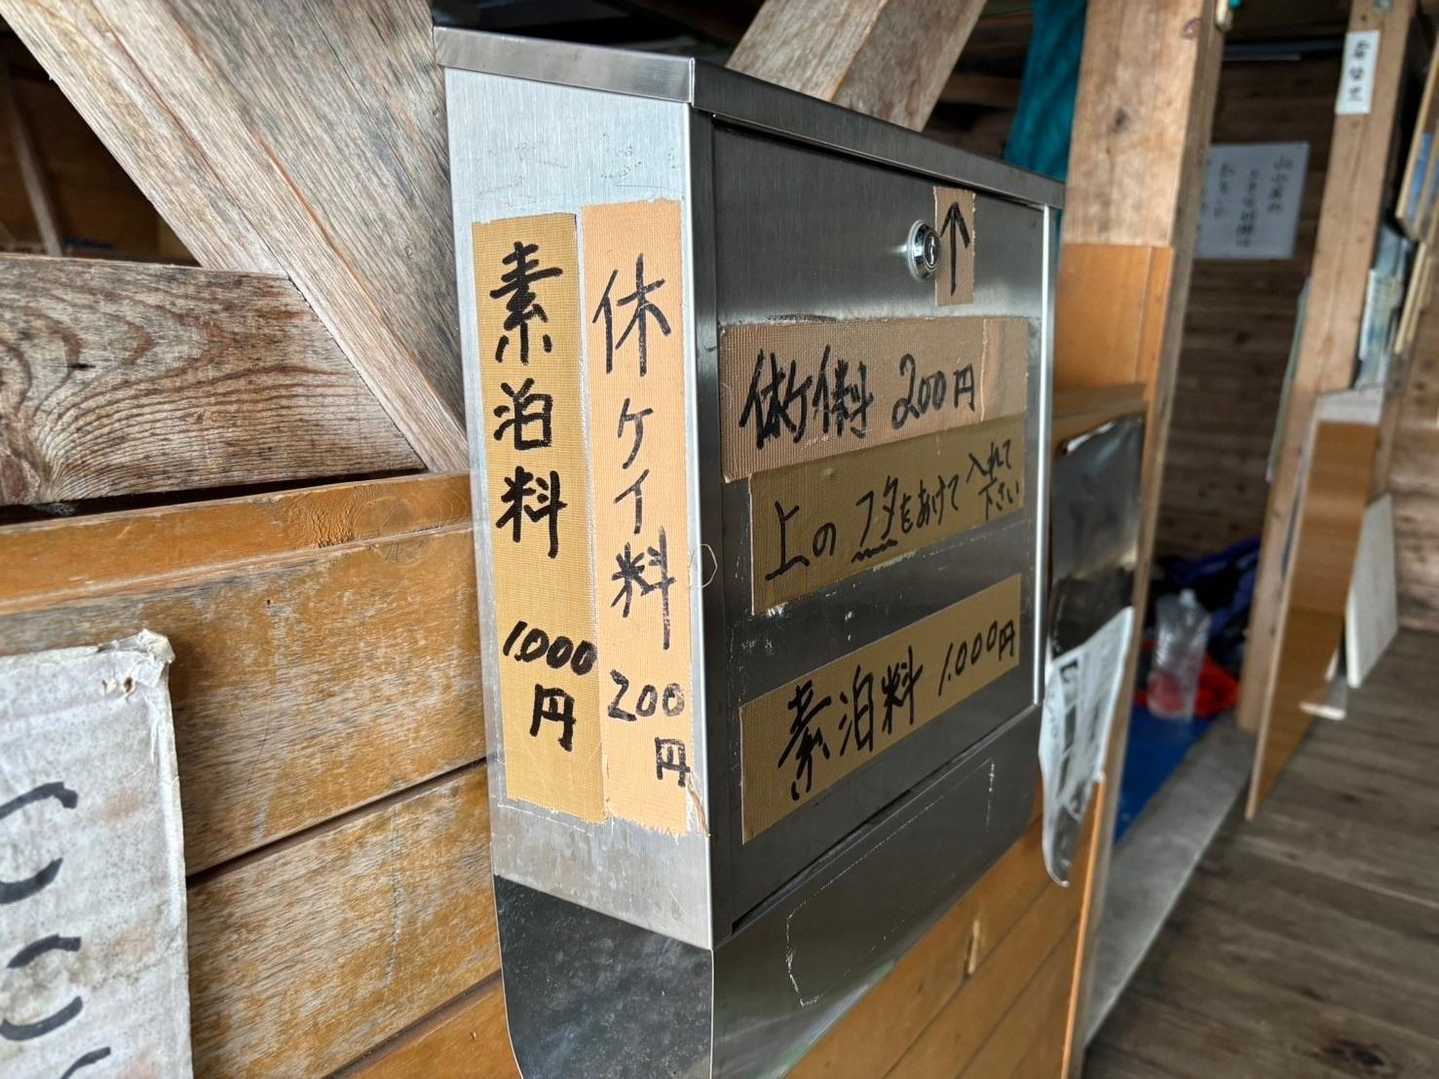 素泊料 1.000円
休ケイ料 200円
↑
休ケイ料 200円
上のフタをあけて入れて下さい
素泊料 1.000円